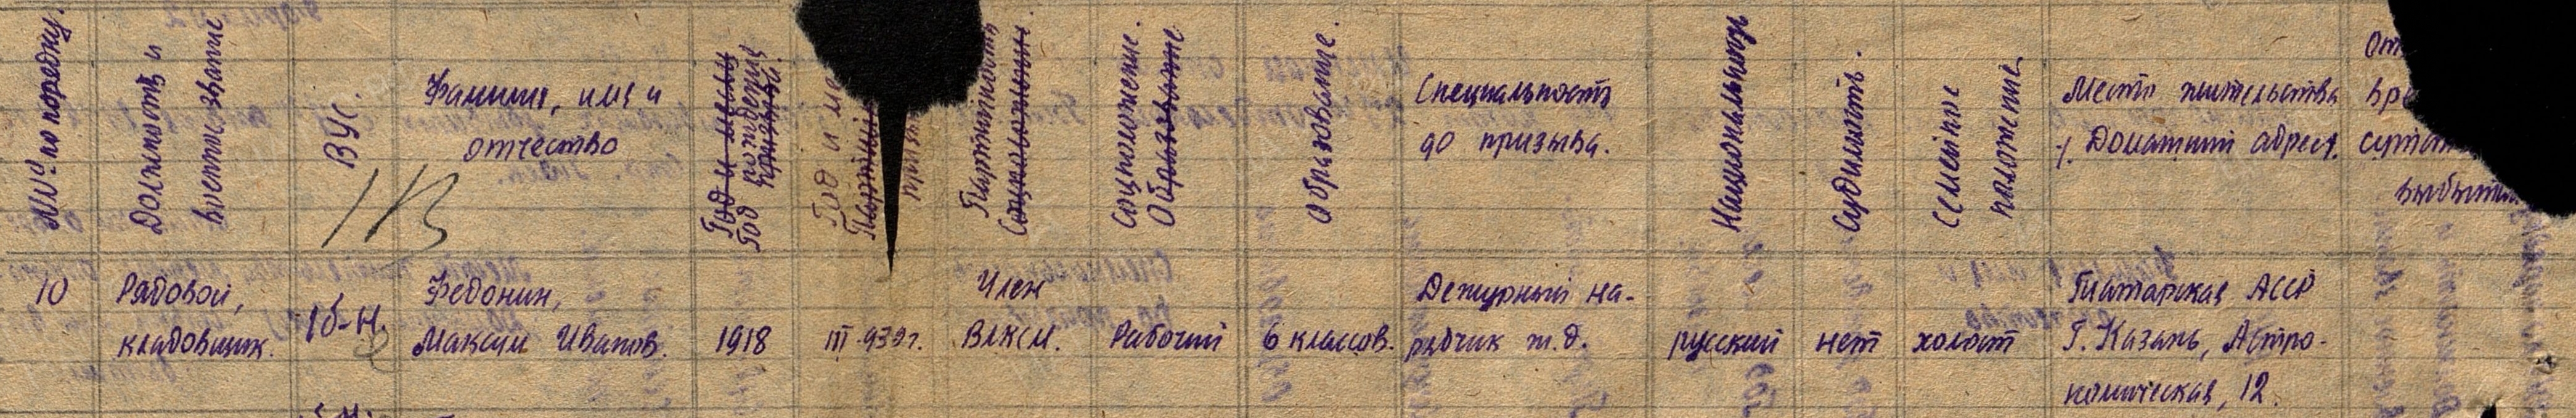 №№ по порядку.
Должность и
военное звание
ВУС.
Фамилия, имя и
отчество
Год и месяц
Год рождения
призыва.
Год и ме
Партийн
приз
Партийность
Соцположение.
Соцположение.
Образование
Образование.
Специальность
до призыва.
Национальность
Судимость.
Семейное
положение
Место жительства
Домашний адрес.
От
вре
выбытия
10
Рядовой,
кладовщик.
1б-н.
Федонин,
Максим Иванов.
1918
III-939г.
Член
ВЛКСМ.
Рабочий
6 классов.
Дежурный на-
рядчик ж.д.
русский
нет
холост
Татарская АССР
Г. Казань, Астро-
номическая, 12.